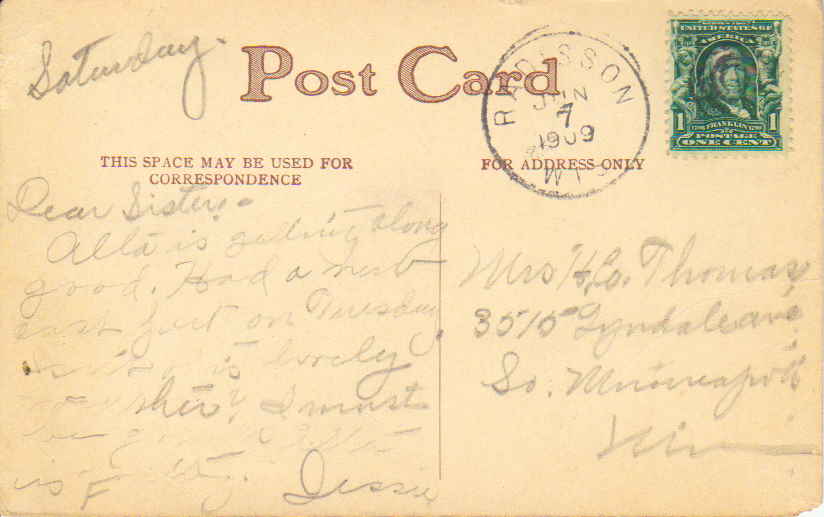 Saturday.
Post Card
RADISSON
JUN
7
1909
WIS
UNITED STATES OF
AMERICA
1 FRANKLIN 1
POSTAGE
ONE CENT
THIS SPACE MAY BE USED FOR
CORRESPONDENCE
FOR ADDRESS ONLY
Dear Sister,-
Alta is getting along
good. Had a
cast put on Tuesday
is lovely
I must
is
Jessie
Mrs H. Co. Thomas
3515 Lyndale ave
So. Minneapolis
Minn